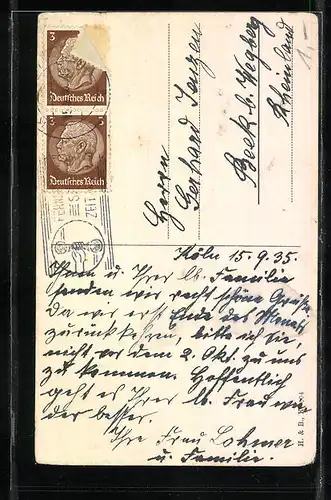 1.-
3
Deutsches Reich
3 3
Deutsches Reich
ZEIT
Herrn
Gerhard Jenzen
Beek b. Wegberg
Rheinland
Köln 15.9.35.
Ihnen u. Ihrer lb. Familie
senden wir recht schöne Grüße.
Da wir erst Ende des Monats
zurückkehren, bitte ich Sie,
nicht vor dem 2. Okt. zu uns
zu kommen. Hoffentlich
geht es Ihrer lb. Frau wie
der besser.
Ihre Frau Lohmer
u. Familie.
H. & B.,